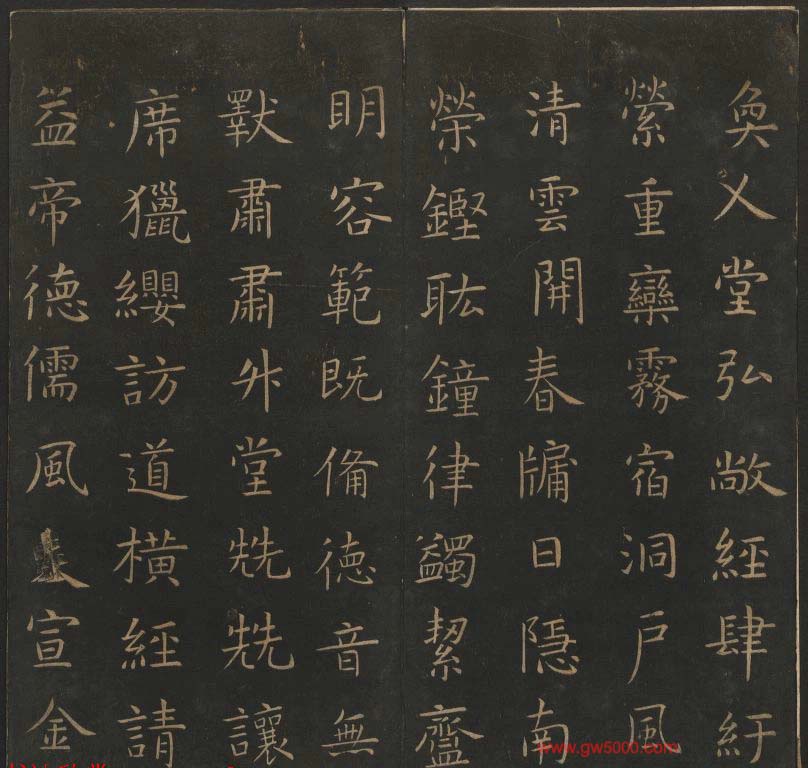 奐乂堂弘敞經肆紆
縈重欒霧宿洞戶風
清雲開春牖日隱南
榮鏗耾鐘律蠲絜齍
明容範既備德音無
斁肅肅升堂兟兟讓
席獵纓訪道橫經請
益帝德儒風宣金
www.gw5000.com